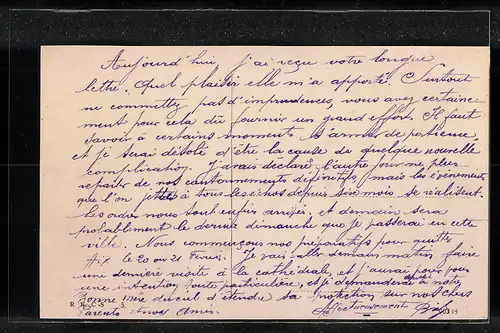 Aujourd'hui, j'ai reçu votre longue
lettre. Quel plaisir elle m'a apporté. Surtout
ne commettez pas d'imprudences, vous avez certaine-
ment pour cela dû fournir un grand effort. Il faut
savoir à certains moments s'armer de patience
et je serai désolé d'être la cause de quelque nouvelle
complication. J'avais déclaré l'autre jour ne plus
reparler de nos cantonnements définitifs, mais les événements
que l'on jette à tous les échos depuis six mois se réalisent.
Les ordres nous sont enfin arrivés, et demain sera
probablement le dernier dimanche que je passerai en cette
ville. Nous commençons nos préparatifs pour quitter
Aix le 20 ou 21 Février. Je vais aller demain matin faire
une dernière visite à la cathédrale, et j'aurai pour vous
une intention toute particulière, et je demanderai à notre
bonne mère du ciel d'étendre sa protection sur nos chers
Parents et nos Amis. Affectueusement
R & C-S 5.